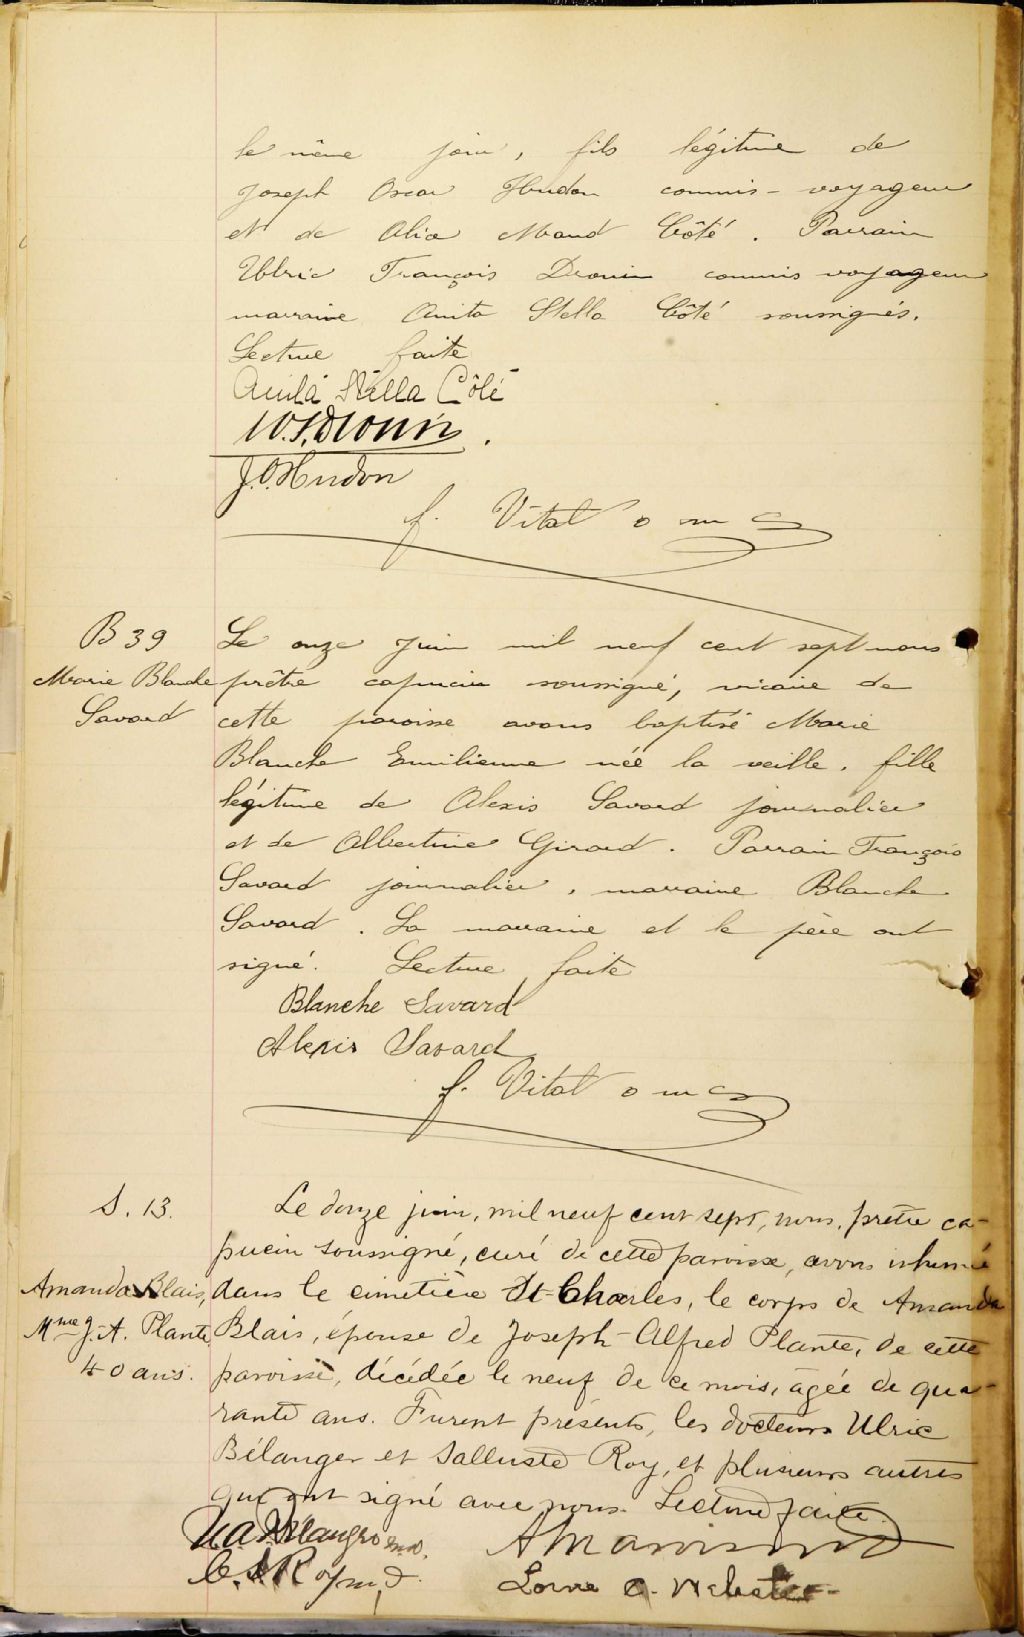 le même jour, fils légitime de
Joseph Oscar Hudon commis-voyageur
et de Alice Maud Côté. Parrain
Ulric François Drouin commis voyageur
marraine Anita Stella Côté soussignés.
Lecture faite
Anita Stella Côté
J.O. Hudon
f. Vital o m c
B 39
Marie Blanche
Savard
Le onze Juin mil neuf cent sept nous
prêtre capucin soussigné, vicaire de
cette paroisse avons baptisé Marie
Blanche Emilienne née la veille, fille
légitime de Alexis Savard journalier
et de Albertine Girard. Parrain François
Savard journalier, marraine Blanche
Savard. La marraine et le père ont
signé. Lecture faite
Blanche Savard
Alexis Savard
f. Vital o m c
S. 13.
Amanda Blais,
Mme J.-A. Plante
40 ans.
Le douze juin, mil neuf cent sept, nous, prêtre ca-
pucin soussigné, curé de cette paroisse, avons inhumé
dans le cimetière St-Charles, le corps de Amanda
Blais, épouse de Joseph-Alfred Plante, de cette
paroisse, décédée le neuf de ce mois, âgée de qua-
rante ans. Furent présents, les docteurs Ulric
Bélanger et Salluste Roy, et plusieurs autres
qui ont signé avec nous. Lecture faite.
U.A. Bélanger m.d.
C. S. Roy m.d.
Lorne C. Webster